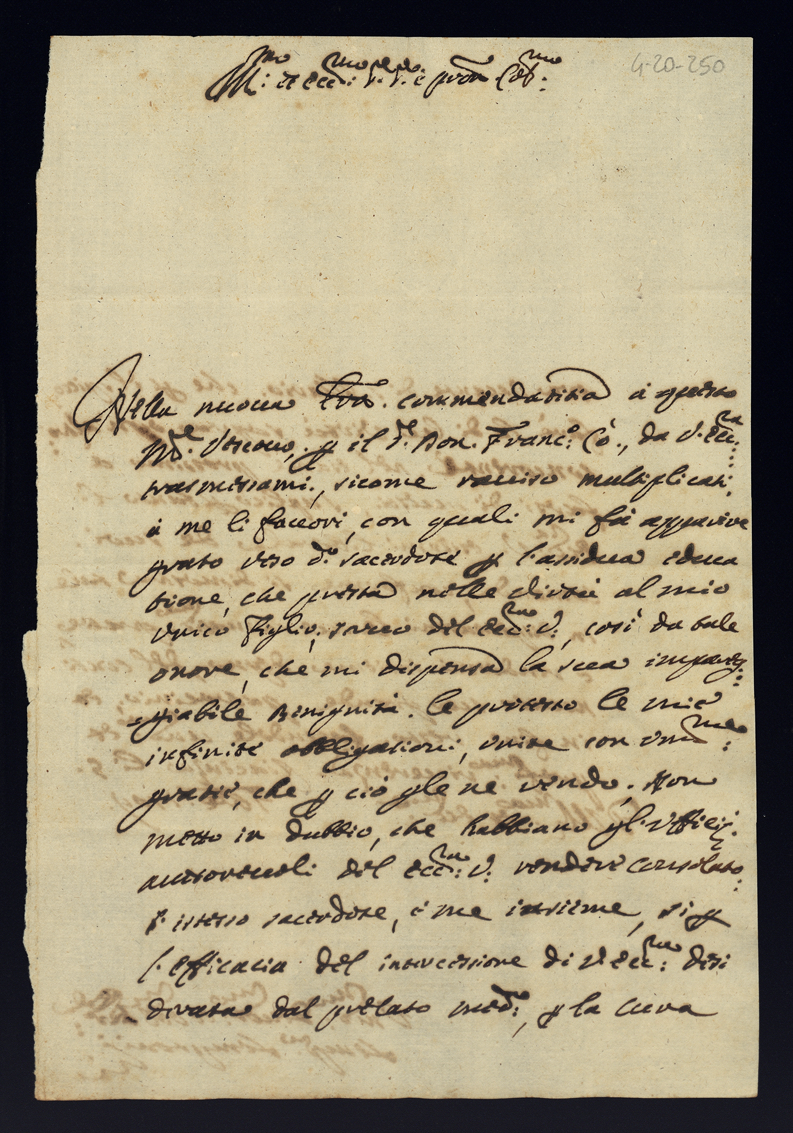 4-20-250
Ill.mo et Ecc.mo S.r S.r e pron Col.mo
Nella nuova Lra. commendatitia à questo
M.r Vescovo, p il S.r Don. Franc.o Cò., da V. Ecc.za
trasmessami, sicome raviso multiplicati
à me li favori, con quali mi fà apparire
grato verso d.o sacerdote p l'assidua educa
tione, che presta nelle virtù al mio
unico figlio, servo del Ecc.za V., così da tale
onore, che mi dispensa la sua impareg:
giabile Benignità. le protesto le mie
infinite obbligationi, unite con um.me
gratie, che p ciò gle ne rendo. Non
metto in dubbio, che habbiano gl'Ufficij
autorevoli del Ecc.za V. rendere consolato
l'istesso sacerdote, e me insieme, si p
l'efficacia del intercessione di V. Ecc.za desi
derata dal prelato med.o, p la